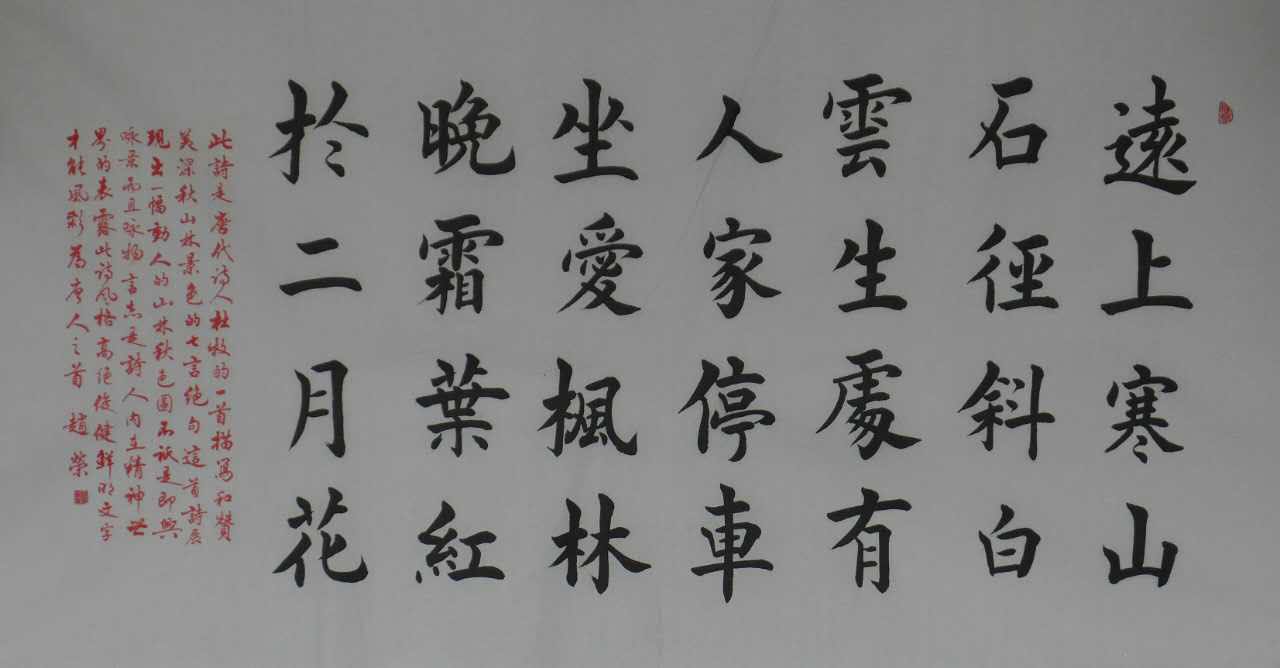 遠上寒山
石徑斜白
雲生處有
人家停車
坐愛楓林
晚霜葉紅
於二月花
此詩是唐代詩人杜牧的一首描寫和贊
美深秋山林景色的七言絕句這首詩展
現出一幅動人的山林秋色圖不祇是即興
咏景而且咏物言志是詩人内在精神世
界的表露此詩风格高绝俊健鮮明文字
才能風彩爲唐人之首 趙榮